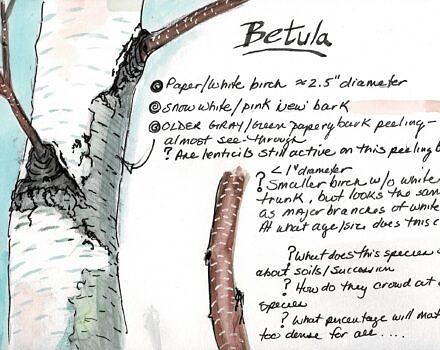 Betula
Paper/white birch ≈ 2.5" diameter
Snow white/pink new bark
OLDER GRAY/Green papery bark peeling -
almost see-through
? Are lenticils still active on this peeling b
< 1" diameter
? Smaller birch w/o white
trunk, but looks the sam
as major branches of white
At what age/size does this c
? What does this species
about soils/succession
? How do they crowd out
species
? What percentage will mat
too dense for all ....